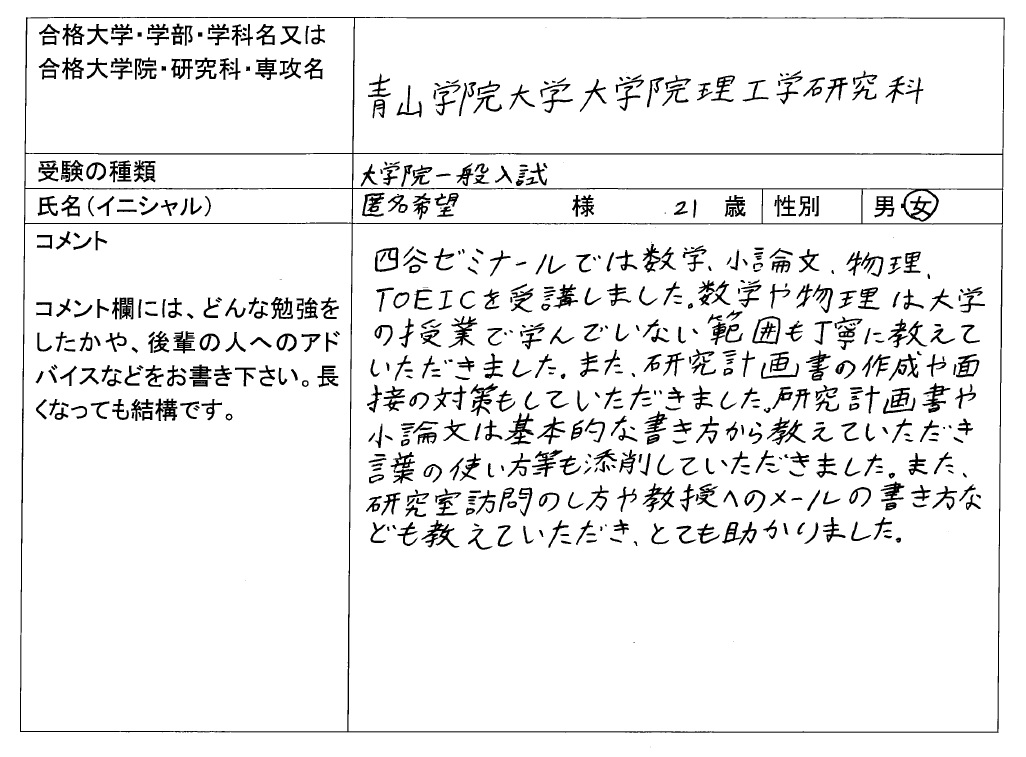 合格大学・学部・学科名又は
合格大学院・研究科・専攻名
青山学院大学大学院理工学研究科
受験の種類
大学院一般入試
氏名（イニシャル）
匿名希望 様 21 歳 性別 男・女
コメント
コメント欄には、どんな勉強を
したかや、後輩の人へのアド
バイスなどをお書き下さい。長
くなっても結構です。
四谷ゼミナールでは数学、小論文、物理、
TOEICを受講しました。数学や物理は大学
の授業で学んでいない範囲も丁寧に教えて
いただきました。また、研究計画書の作成や面
接の対策もしていただきました。研究計画書や
小論文は基本的な書き方から教えていただき
言葉の使い方等も添削していただきました。また、
研究室訪問のし方や教授へのメールの書き方な
ども教えていただき、とても助かりました。